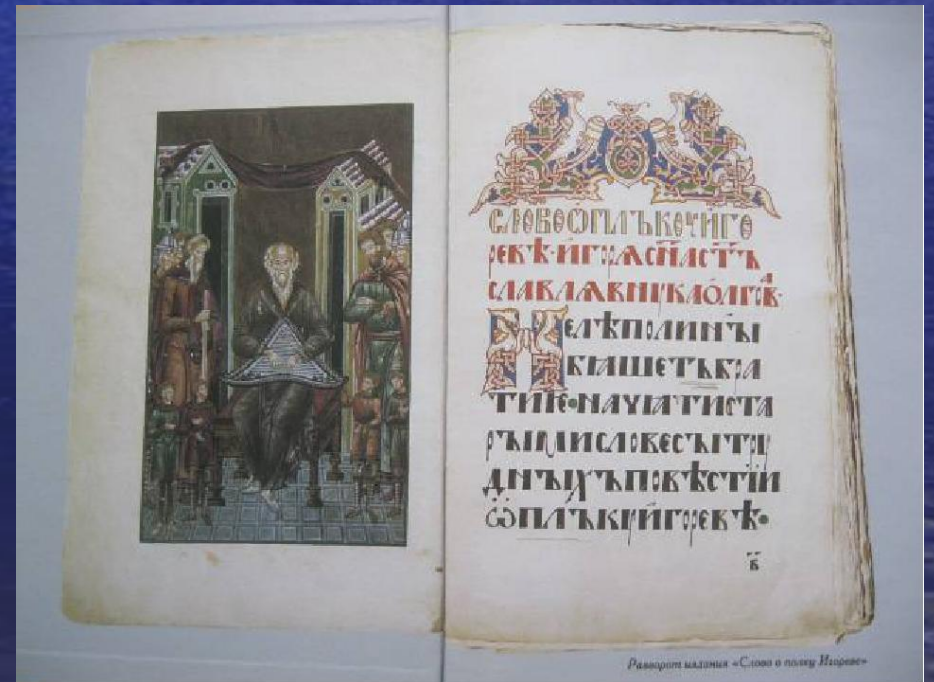 СЛОВОѾПЛЪКОУЙГО
РЕВѢ·ЙГОРѦСН҃АСТ҃Ъ
СЛАВЛѦВНꙊКАОЛГОВ·
НЕЛѢПОЛИНЫ
БѦШЕТЪБРА
ТИЕ·НАЧѦТИСТА
РЫМИСЛОВЕСЫТРꙊ
ДНЫХЪПОВѢСТІЙ
ѾПЛЪКꙊЙГОРЕВѢ·
в҃
Разворот издания «Слово о полку Игореве»